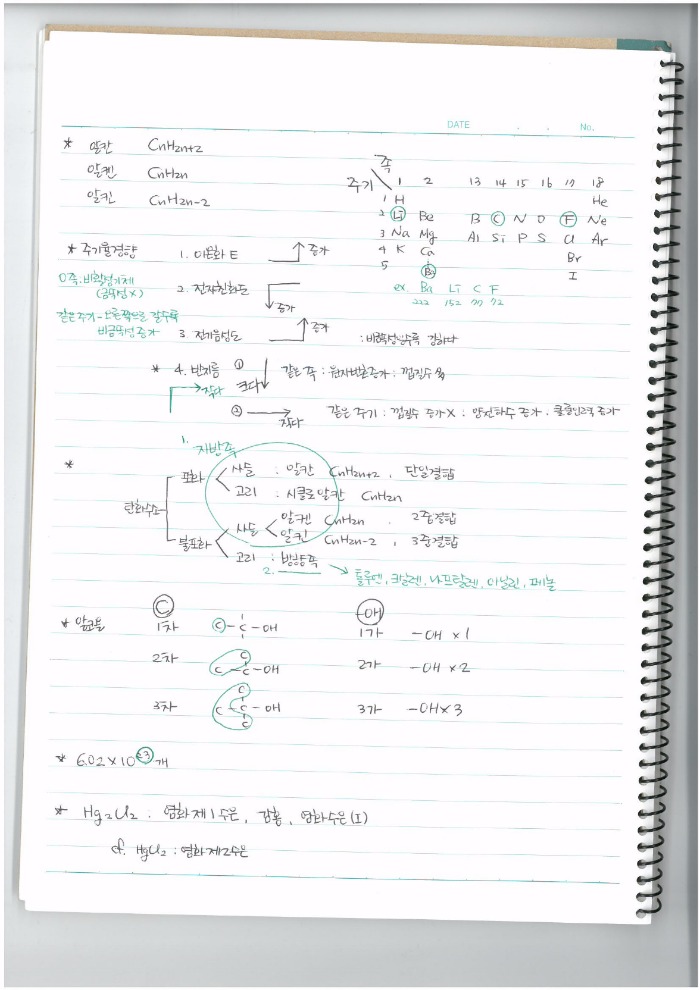 DATE . . No.
* 알칸 CnH2n+2
알켄 CnH2n
알킨 CnH2n-2
족
주기 1 2 13 14 15 16 17 18
1 H He
2 Li Be B C N O F Ne
3 Na Mg Al Si P S Cl Ar
4 K Ca Br
5 Ba I
ex. Ba Li C F
222 152 77 72
* 주기율경향 1. 이온화 E 증가
0족. 비활성기체
(금속성 X)
2. 전자친화도 증가
같은 주기 - 오른쪽으로 갈수록
비금속성 증가
3. 전기음성도 증가 : 비금속성일수록 강하다
* 4. 반지름 ① 크다 같은 족 : 원자번호증가 : 껍질수 多
작다
② 작다 같은 주기 : 껍질수 증가 X : 양전하수 증가 .
1. 지방족
*
탄화수소
포화 사슬 : 알칸 CnH2n+2 , 단일결합
고리 : 시클로알칸 CnH2n
불포화 사슬 알켄 CnH2n . 2중결합
알킨 CnH2n-2 , 3중결합
고리 : 방향족
2.
톨루엔, 크실렌, 나프탈렌, 아닐린, 페놀
* 알코올 C -OH
1차 C-C-OH 1가 -OH x 1
2차 C C-OH C 2가 -OH x 2
3차 C C-OH C C 3가 -OH x 3
* 6.02 x 10 23 개
* Hg2Cl2 : 염화제1수은, 감홍, 염화수은(I)
cf. HgCl2 : 염화제2수은